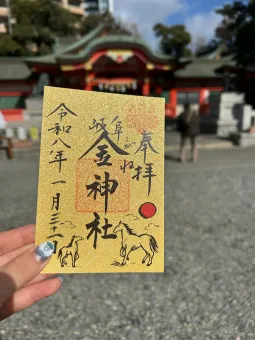 奉拝
岐阜
金神社
令和八年一月三十一日